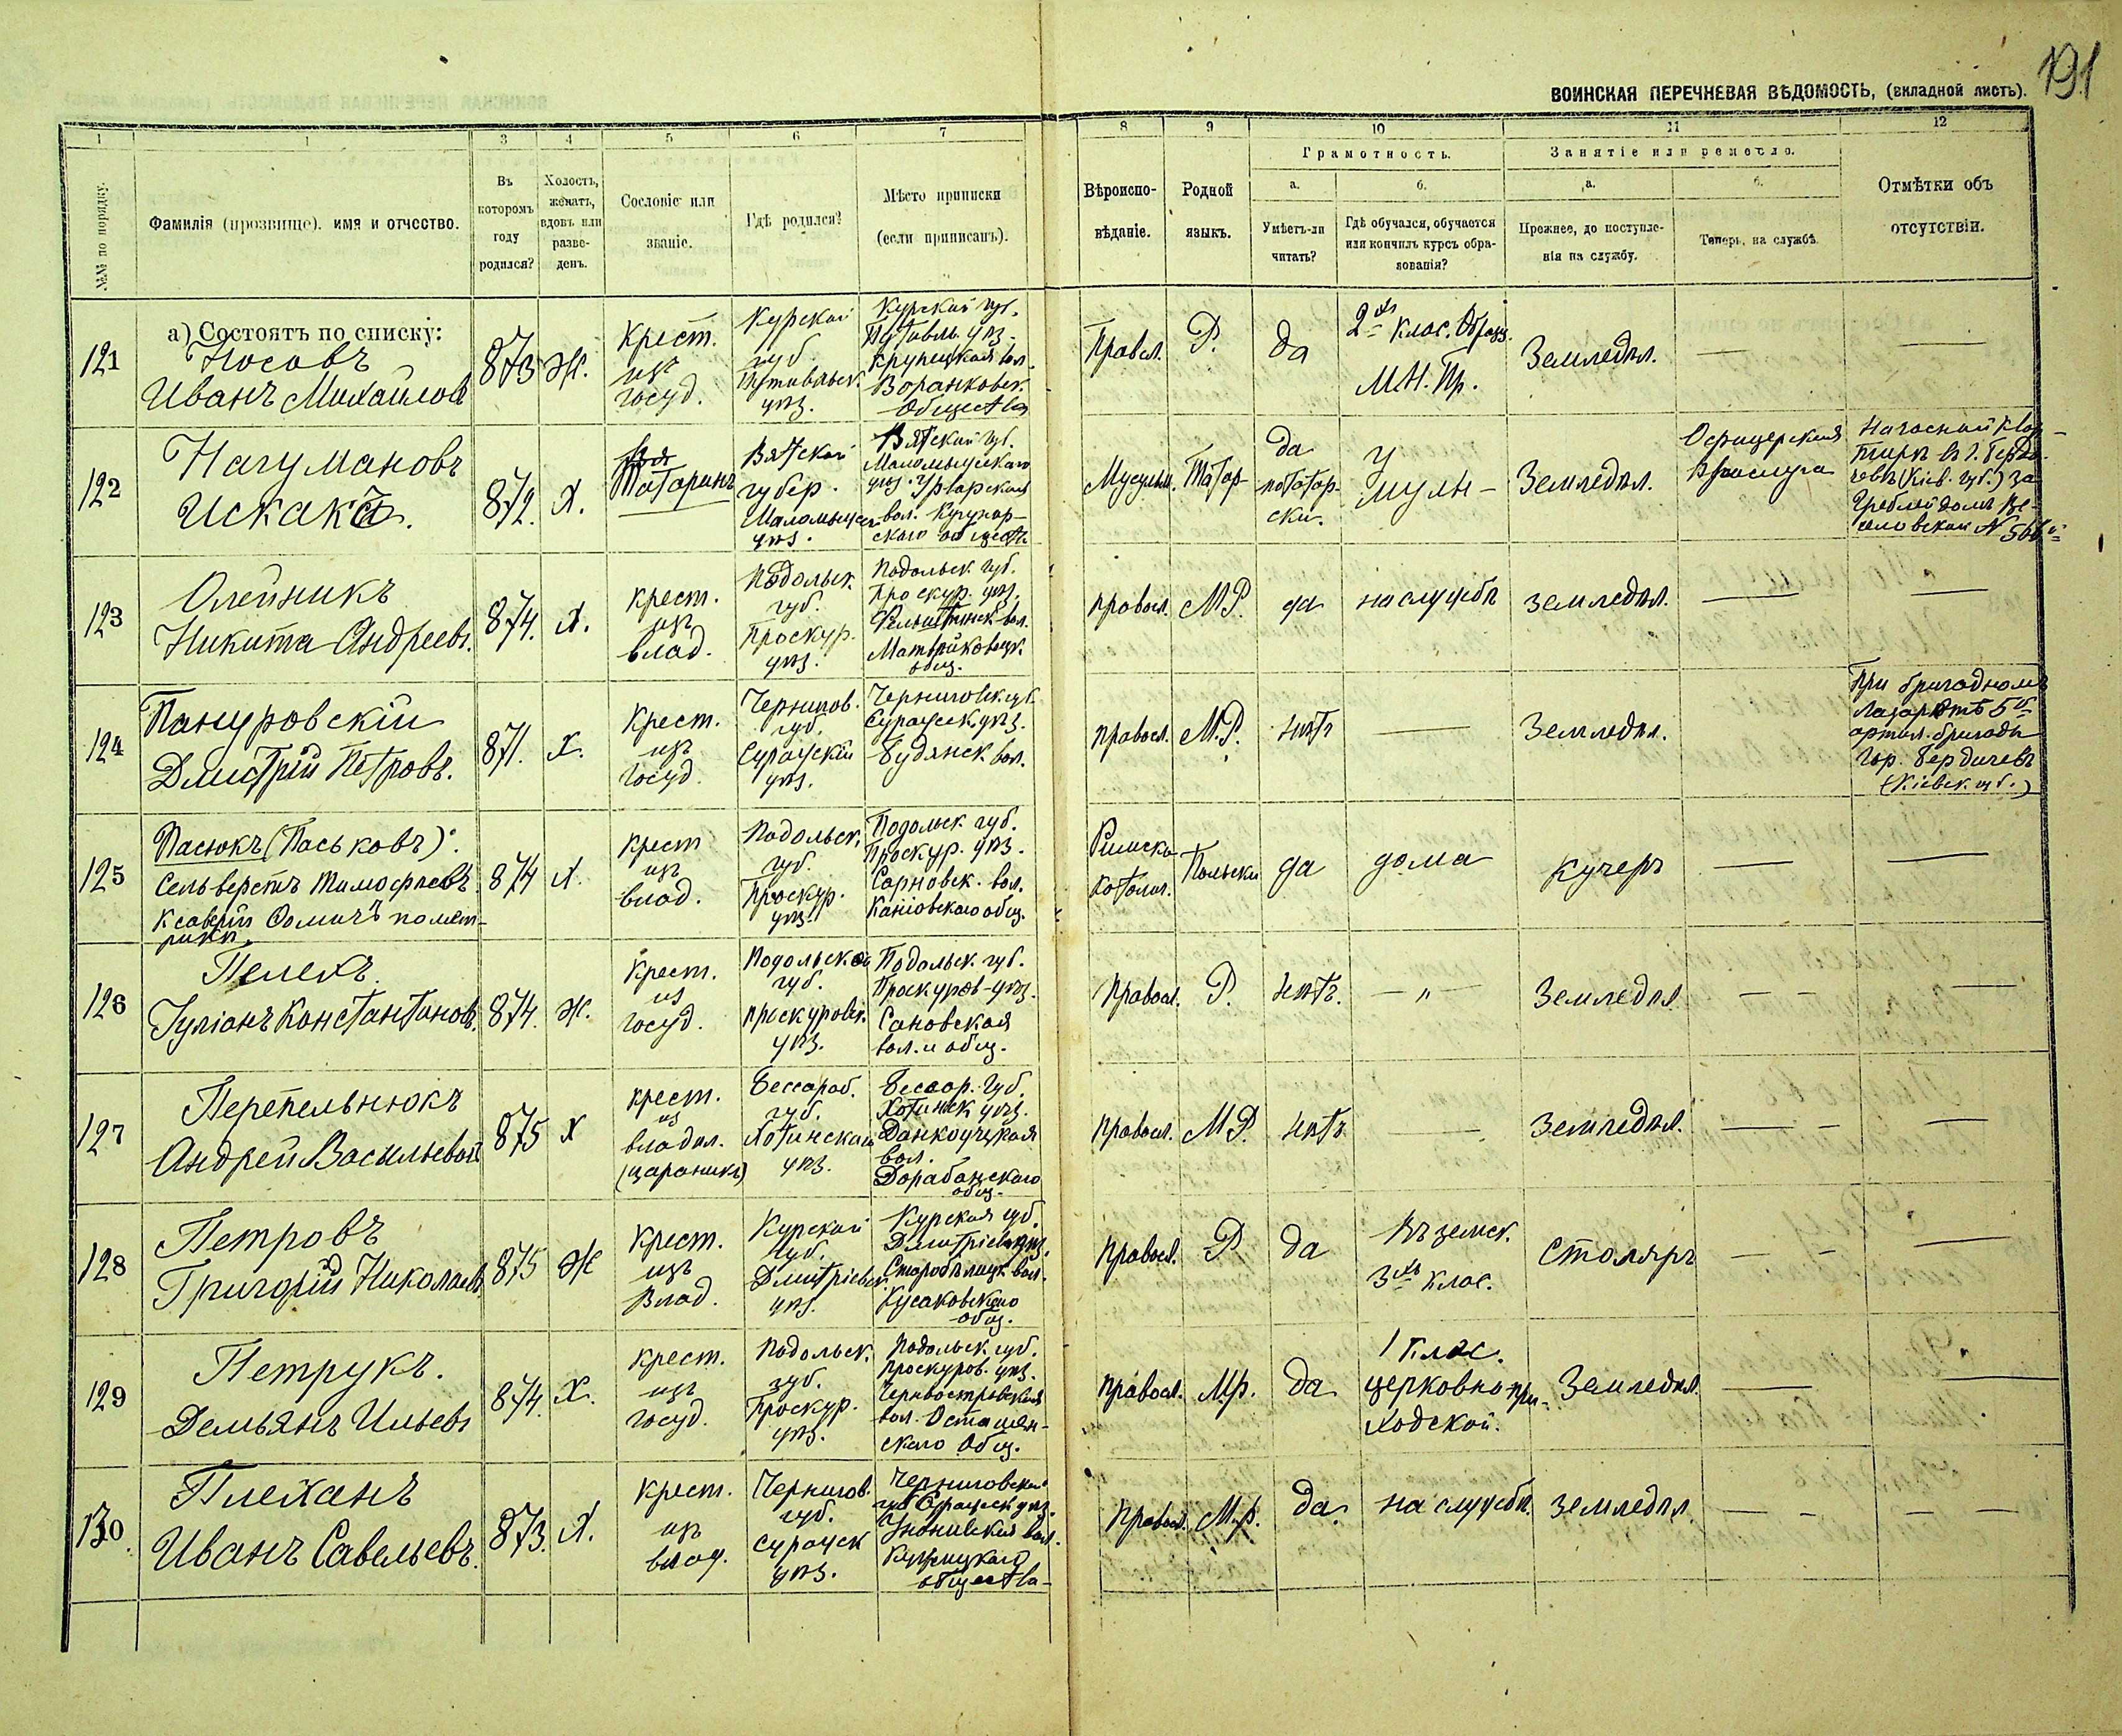 191
ВОИНСКАЯ ПЕРЕЧНЕВАЯ ВѢДОМОСТЬ, (вкладной листъ).
1 1 3 4 5 6 7 8 9 10 11 12
№№ по порядку.
Фамилія (прозвище). имя и отчество.
Въ которомъ году родился?
Холостъ, женатъ, вдовъ или разведенъ.
Сословіе или званіе.
Гдѣ родился?
Мѣсто приписки (если приписанъ).
Вѣроиспо-
вѣданіе.
Родной
языкъ.
Грамотность.
а.
Умѣетъ-ли
читать?
б.
Гдѣ обучался, обучается
или кончилъ курсъ обра-
зованія?
Занятіе или ремесло.
а.
Прежнее, до поступле-
нія на службу.
б.
Теперь, на службѣ.
Отмѣтки объ
отсутствіи.
а) Состоятъ по списку:
121
Носовъ
Иванъ Михайловъ
873
Ж.
Крест.
изъ
госуд.
Курской
губ.
Путивльск.
уѣз.
Курской губ.
Путивль. уѣз.
Крупецкая вол.
Воранковск.
Общества
Правсл.
Р.
да
2хъ клас. Образ.
М.Н.Пр.
Земледѣл.
122
Нагумановъ
Искакъ.
872.
Х.
Татаринъ
Вятской
губер.
Маломыжск.
уѣз.
Вятской губ.
Маломыжскаго
уѣз.
вол.
скаго общест.
Мусульм.
Татар-
да
по татар-
ски.
У
мулы-
Земледѣл.
Офицерская
прислуга
На частной квар-
тирѣ въ г. Берди-
чевѣ (Кіев. губ.) за
Греблей домъ Ве-
селовской №
123
Олейникъ
Никита Андреевъ.
874.
Х.
крест.
изъ
влад.
Подольск.
губ.
Проскур.
уѣз.
Подольск. губ.
Проскур. уѣз.
Фельштинск вол.
Матвѣйковецк.
общ.
правосл.
М.Р.
да
на службѣ
земледѣл.
124
Пануровскій
Дмитрій Петровъ.
871.
Х.
Крест.
изъ
госуд.
Чернигов.
губ.
Суражскій
уѣз.
Черниговск. губ.
Суражск. уѣз.
Будянск. вол.
правосл.
М.Р.
нѣтъ
Земледѣл.
При бригадномъ
Лазаретѣ 5й
артил. бригады
гор. Бердичевъ
(Кіевск. губ.)
125
Пасюкъ (Паськовъ).
Сельверстъ Тимофеевъ
Ксаверій Фомичъ по мет-
рикѣ.
874
Х.
крест
изъ
влад.
Подольск.
губ.
Проскур.
уѣз.
Подольск. губ.
Проскур. уѣз.
Сарновск. вол.
Каніовскаго общ.
Римско
Католич.
Польскій
да
дома
кучеръ
126
Пелехъ
Іуліанъ Константиновъ.
874.
Ж.
Крест.
из
госуд.
Подольской
губ.
Проскуровск.
уѣз.
Подольск. губ.
Проскуров-уѣз.
Сановская
вол. и общ.
Правосл.
Р.
нѣтъ.
— „ —
Земледѣл
127
Перепельнюкъ
Андрей Васильевъ
875
Х
крест.
из
владѣл.
(царанинъ)
Бессараб.
губ.
Хотинскаго
уѣз.
Бессар. губ.
Хотинск уѣз.
Данкоуцкая
вол.
Дорабанскаго
общ.
правосл.
М.Р.
нѣтъ
Земледѣл.
128
Петровъ
Григорій Николаевъ
875
Ж
Крест.
изъ
Влад.
Курской
губ.
Дмитріевск.
уѣз.
Курская губ.
Дмитріев. уѣз.
Старобѣлицк вол.
Кусаковскаго
общ.
правосл.
Р
да
Въ земск.
3хъ клас.
Столяръ
129
Петрукъ.
Демьянъ Ильевъ
874.
Х.
крест.
изъ
госуд.
Подольск.
губ.
Проскур.
уѣз.
Подольск. губ.
Проскуров. уѣз.
Чернвостровская
вол. Осташен-
скаго Общ.
правосл.
М.р.
да
1 клас.
церковно-при-
ходской.
Земледѣл.
130.
Плеханъ
Иванъ Савельевъ.
873.
Х.
Крест.
изъ
влад.
Чернигов.
губ.
Суражск
уѣз.
Черниговской
губ Суражск уѣз.
вол.
общества
правосл.
М.р.
да.
на службѣ.
земледѣл.